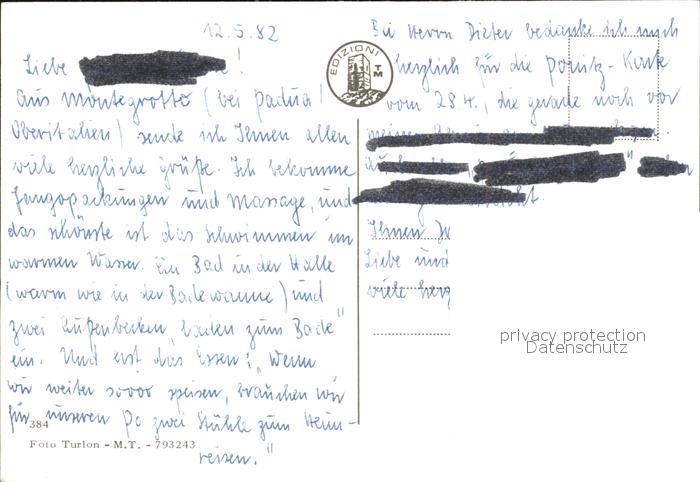 12.5.82
Liebe !
aus Montegrotto (bei Padua /
Oberitalien) sende ich Ihnen allen
viele herzliche Grüße. Ich bekomme
Fangopackungen und Massage, und
das schönste ist das Schwimmen im
warmen Wasser. Ein Bad in der Halle
(warm wie in der Badewanne) und
zwei Außenbecken "laden zum Bade"
ein. Und erst das Essen! "Wenn
wir weiter soooo speisen, brauchen wir
für unseren Po zwei Stühle zum Heim-
reisen."
384
Foto Turlon - M.T. - 793243
EDIZIONI
TM
Bei Herrn Dieter bedanke ich mich
herzlich für die Karte
vom 28.4., die gerade noch vor
Ihnen
Liebe und
viele herz
privacy protection
Datenschutz